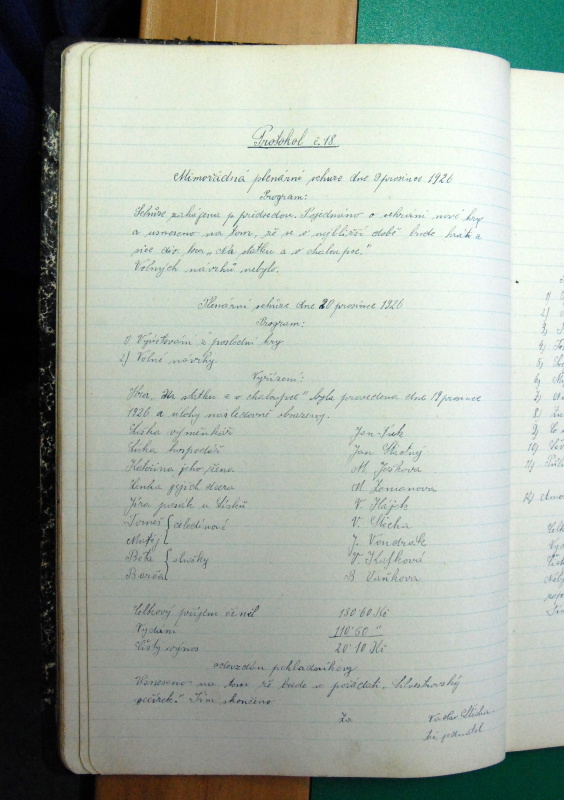 Protokol č. 18.
Mimořádná plenární schůze dne 9 prosince 1926
Program:
Schůze zahájena p. předsedou. Pojednáno o sehrání nové hry
a usneseno na tom, že se v nejbližší době bude hrát a
sice div. hra „Na statku a v chaloupce."
Volných návrhů nebylo.
Plenární schůze dne 20 prosince 1926
Program:
1) Vyúčtování z poslední hry
2) Volné návrhy.
Vyřízení:
Hra „Na statku a v chaloupce" byla provedena dne 19 prosince
1926 a úlohy následovně obsazeny.
Liška výměnkář Jan
Liška hospodář Jan Šťastný
Kateřina jeho žena M. Joškova
Lenka jejich dcera M. Zemanova
Jíra pasák u Lišků V. Hájek
Tomeš čeledínové V. Stícha
Matěj J. Vondrak
Běta služky V. Kafková
Barča B. Vaňkova
Celkový příjem činil 130·60 Kč
Vydání 110·50 "
Čistý výnos 20·10 Kč
odevzdán pokladníkovy
Usneseno na tom že bude se pořádati „Silvestrovský
večírek". Tím skončeno
Za Václav Stícha
t.č. jednatel
1)
2)
3)
4)
5)
6)
7)
8)
9)
10)
11)
12)